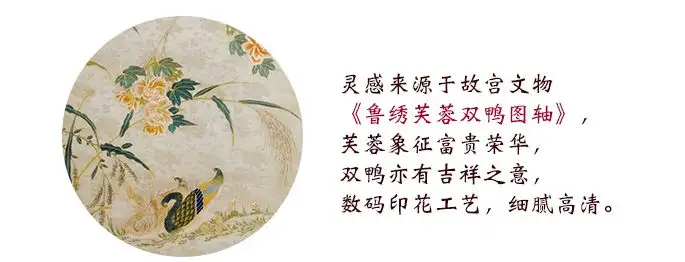 灵感来源于故宫文物
《鲁绣芙蓉双鸭图轴》，
芙蓉象征富贵荣华，
双鸭亦有吉祥之意，
数码印花工艺，细腻高清。